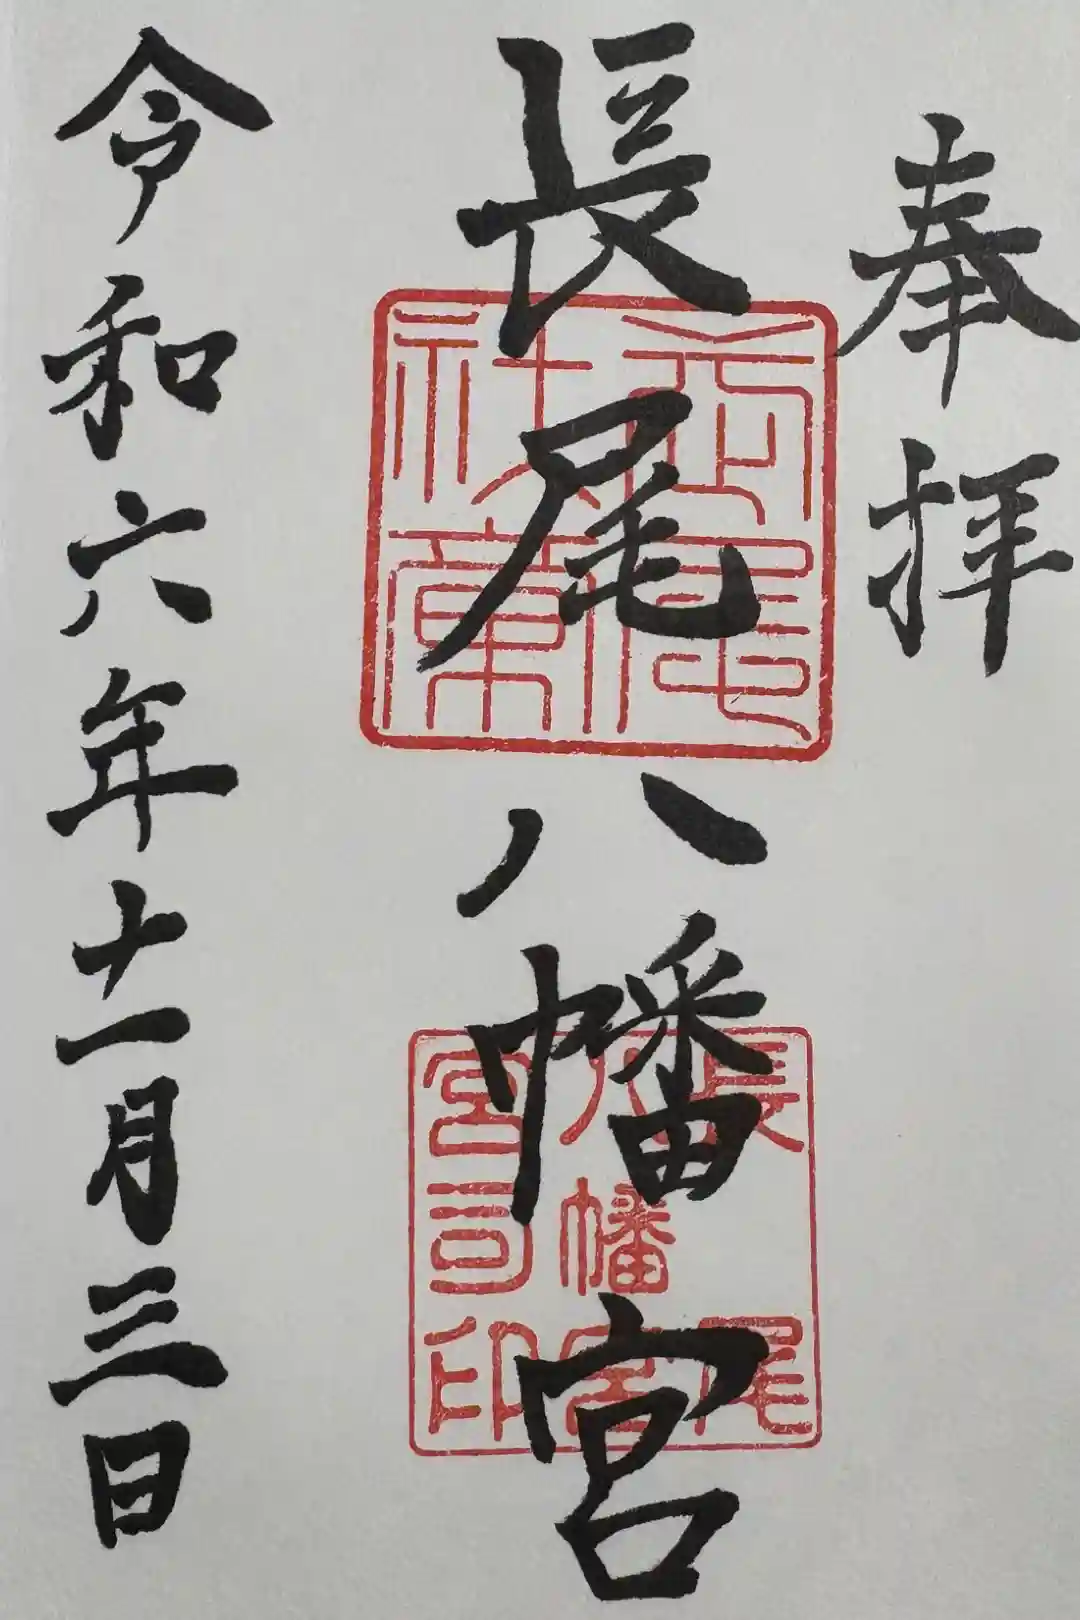 奉拝
長尾八幡宮
令和六年十一月三日
長尾
八幡宮
宮司印